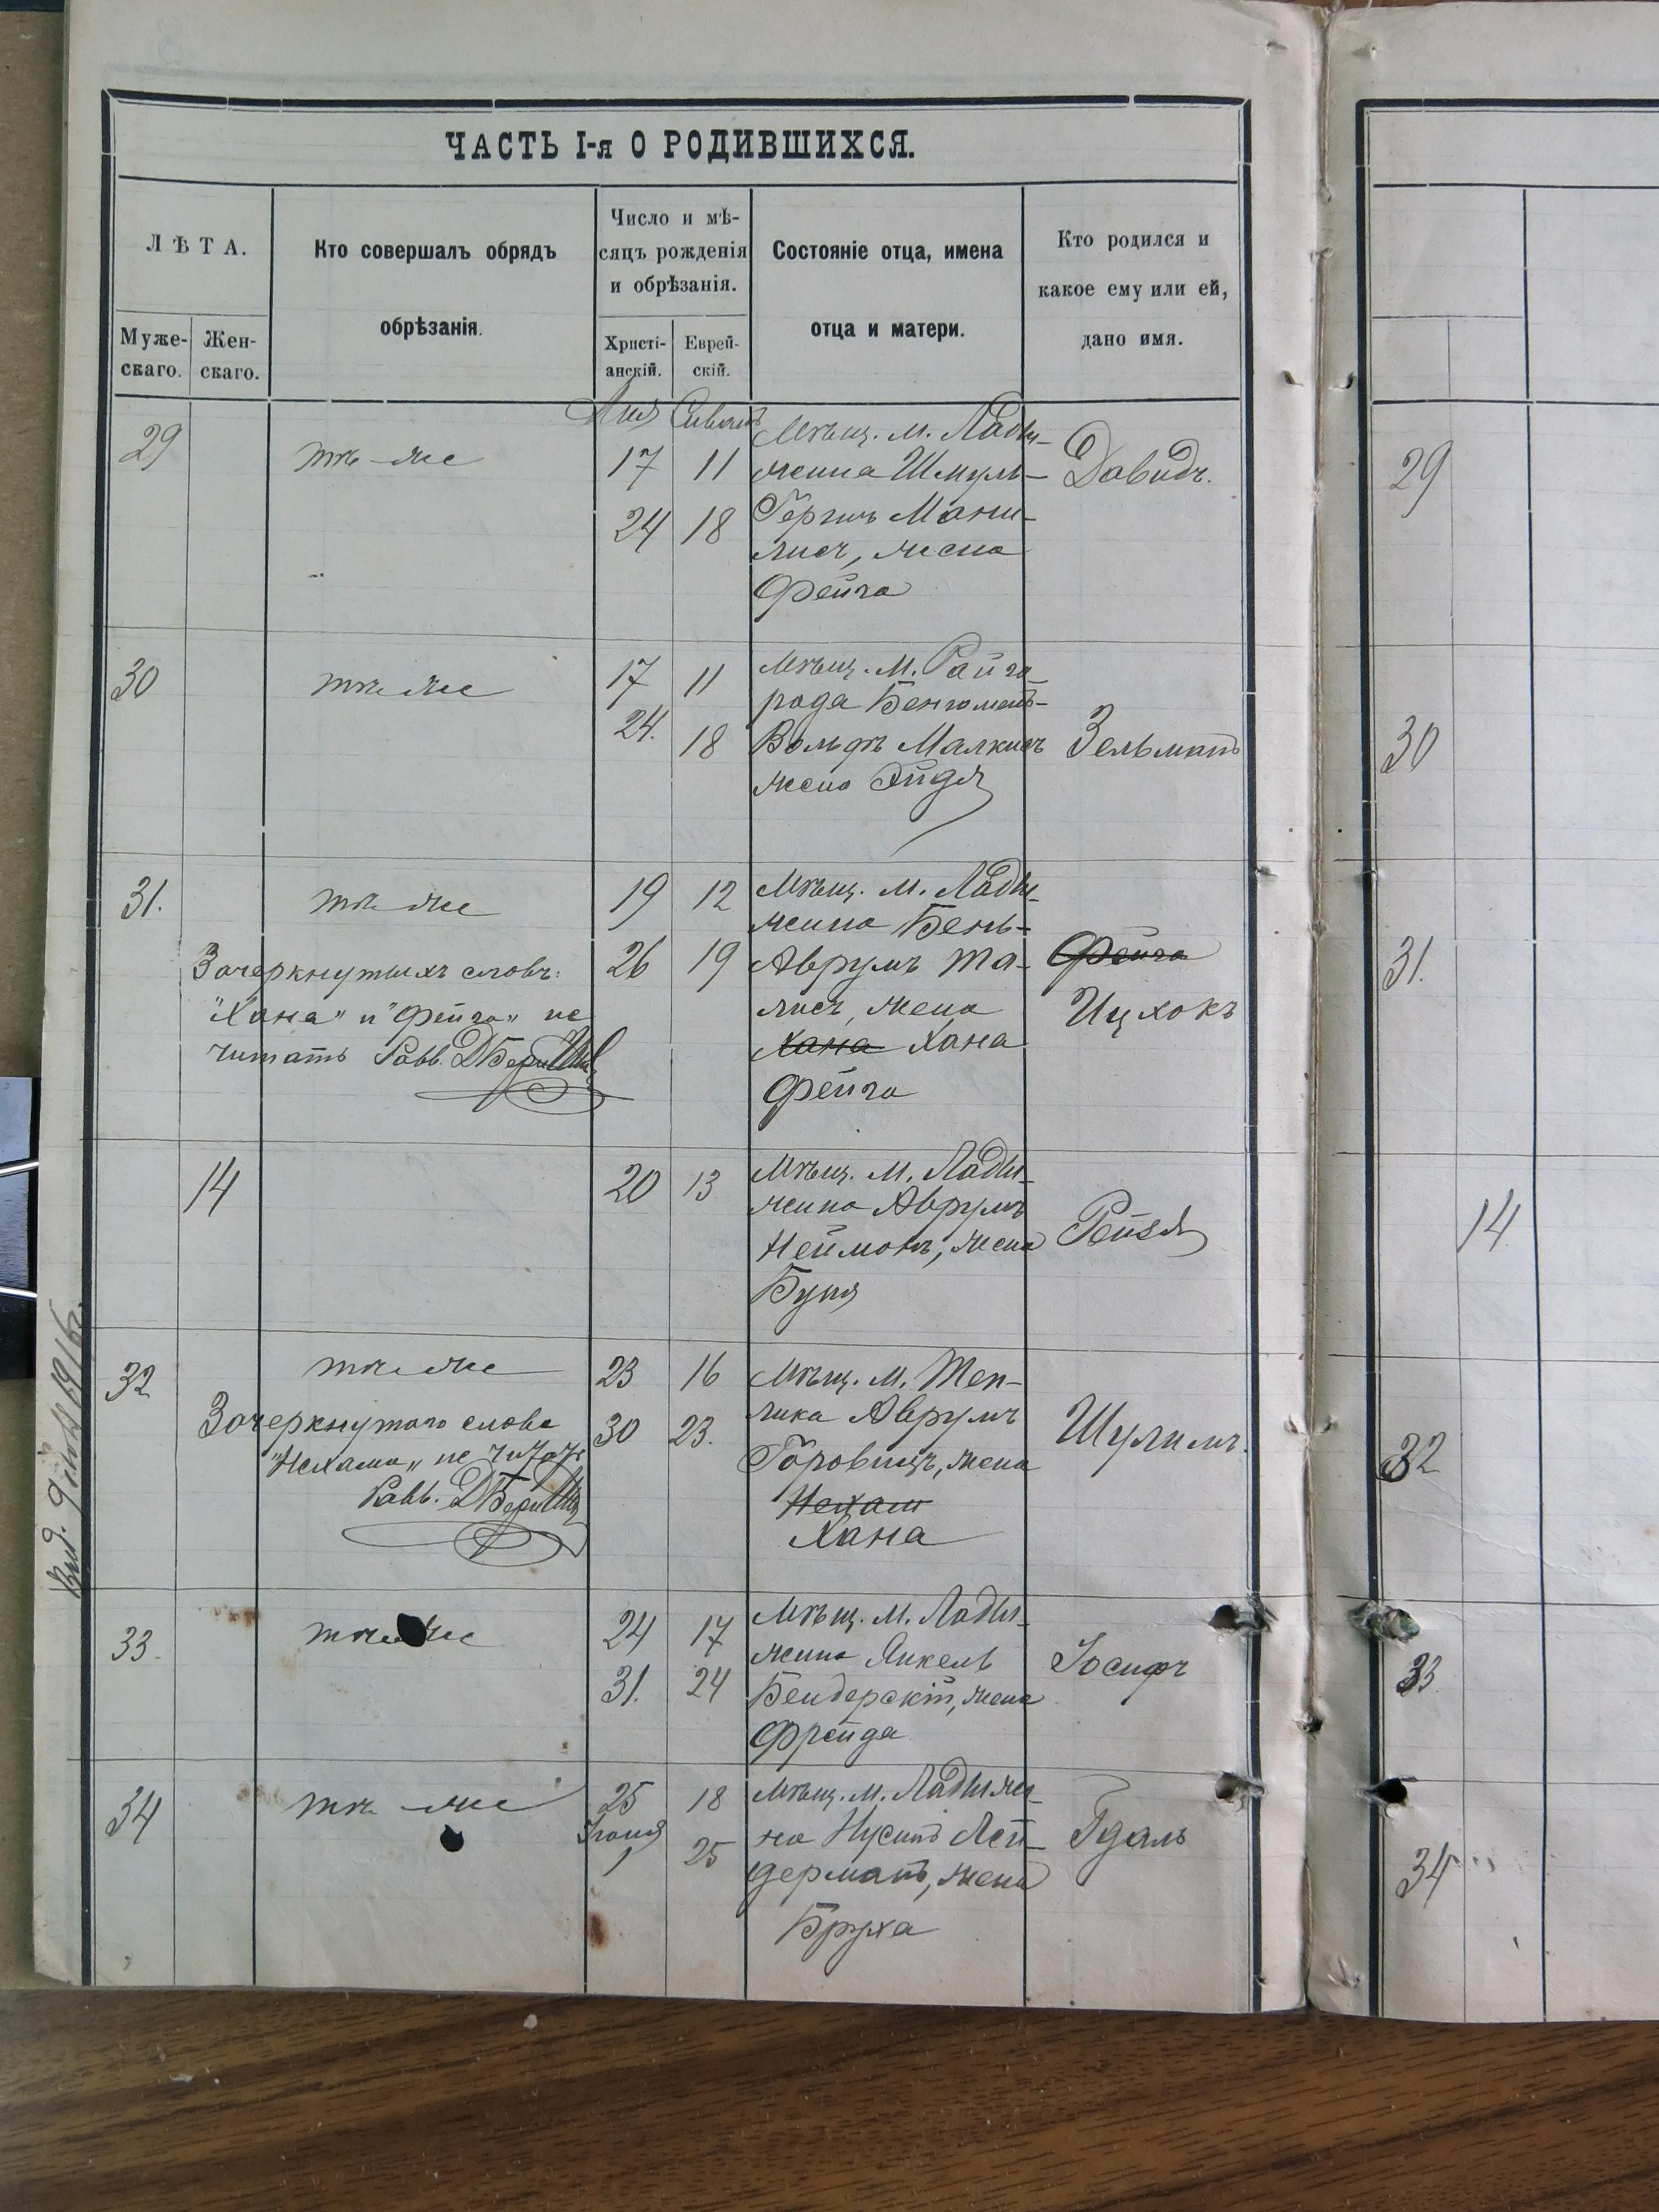 ЧАСТЬ I-я О РОДИВШИХСЯ.
ЛѢТА.
Муже-
скаго.
Жен-
скаго.
Кто совершалъ обрядъ
обрѣзанія.
Число и мѣ-
сяцъ рожденія
и обрѣзанія.
Христі-
анскій.
Еврей-
скій.
Состояніе отца, имена
отца и матери.
Кто родился и
какое ему или ей,
дано имя.
Мая Сиванъ
29
тѣ-же
17 11
24 18
Мѣщ. м. Лады-
жина Шмуль-
Гершъ Мани-
лисъ, жена
Фейга
Давидъ.
30
тѣ же
17 11
24. 18
Мѣщ. м. Райго-
рода Беніоминъ-
Вольфъ Малкисъ
жена Эйдя
Зельманъ
31.
тѣ же
Зачеркнутыхъ словъ:
"Хана" и "Фейга" не
читать Равв.
19 12
26 19
Мѣщ. м. Лады-
жина Бень-
Аврумъ Та-
лисъ, жена
Хана Хана
Фейга
Фейга
Ицхокъ
14
20 13
Мѣщ. м. Лады-
жина Аврумъ
Неймонъ, жена
Буня
Рейзя
32
тѣ же
Зачеркнутого слова
"Нехама" не читать
Равв.
23 16
30 23.
Мѣщ. м. Теп-
лика Аврумъ
Горовицъ, жена
Нехам
Хана
Шулимъ.
33.
тѣ же
24 17
31. 24
Мѣщ. м. Лады-
жина Янкель
Бендерскій, жена
Фрейда
Іосифъ
34
тѣ же
25 18
Іюня
1 25
Мѣщ. м. Ладыжи-
на Нусинъ Лей-
дерманъ, жена
Бруха
Гдаль
1916г.
29
30
31.
14
32
33.
34